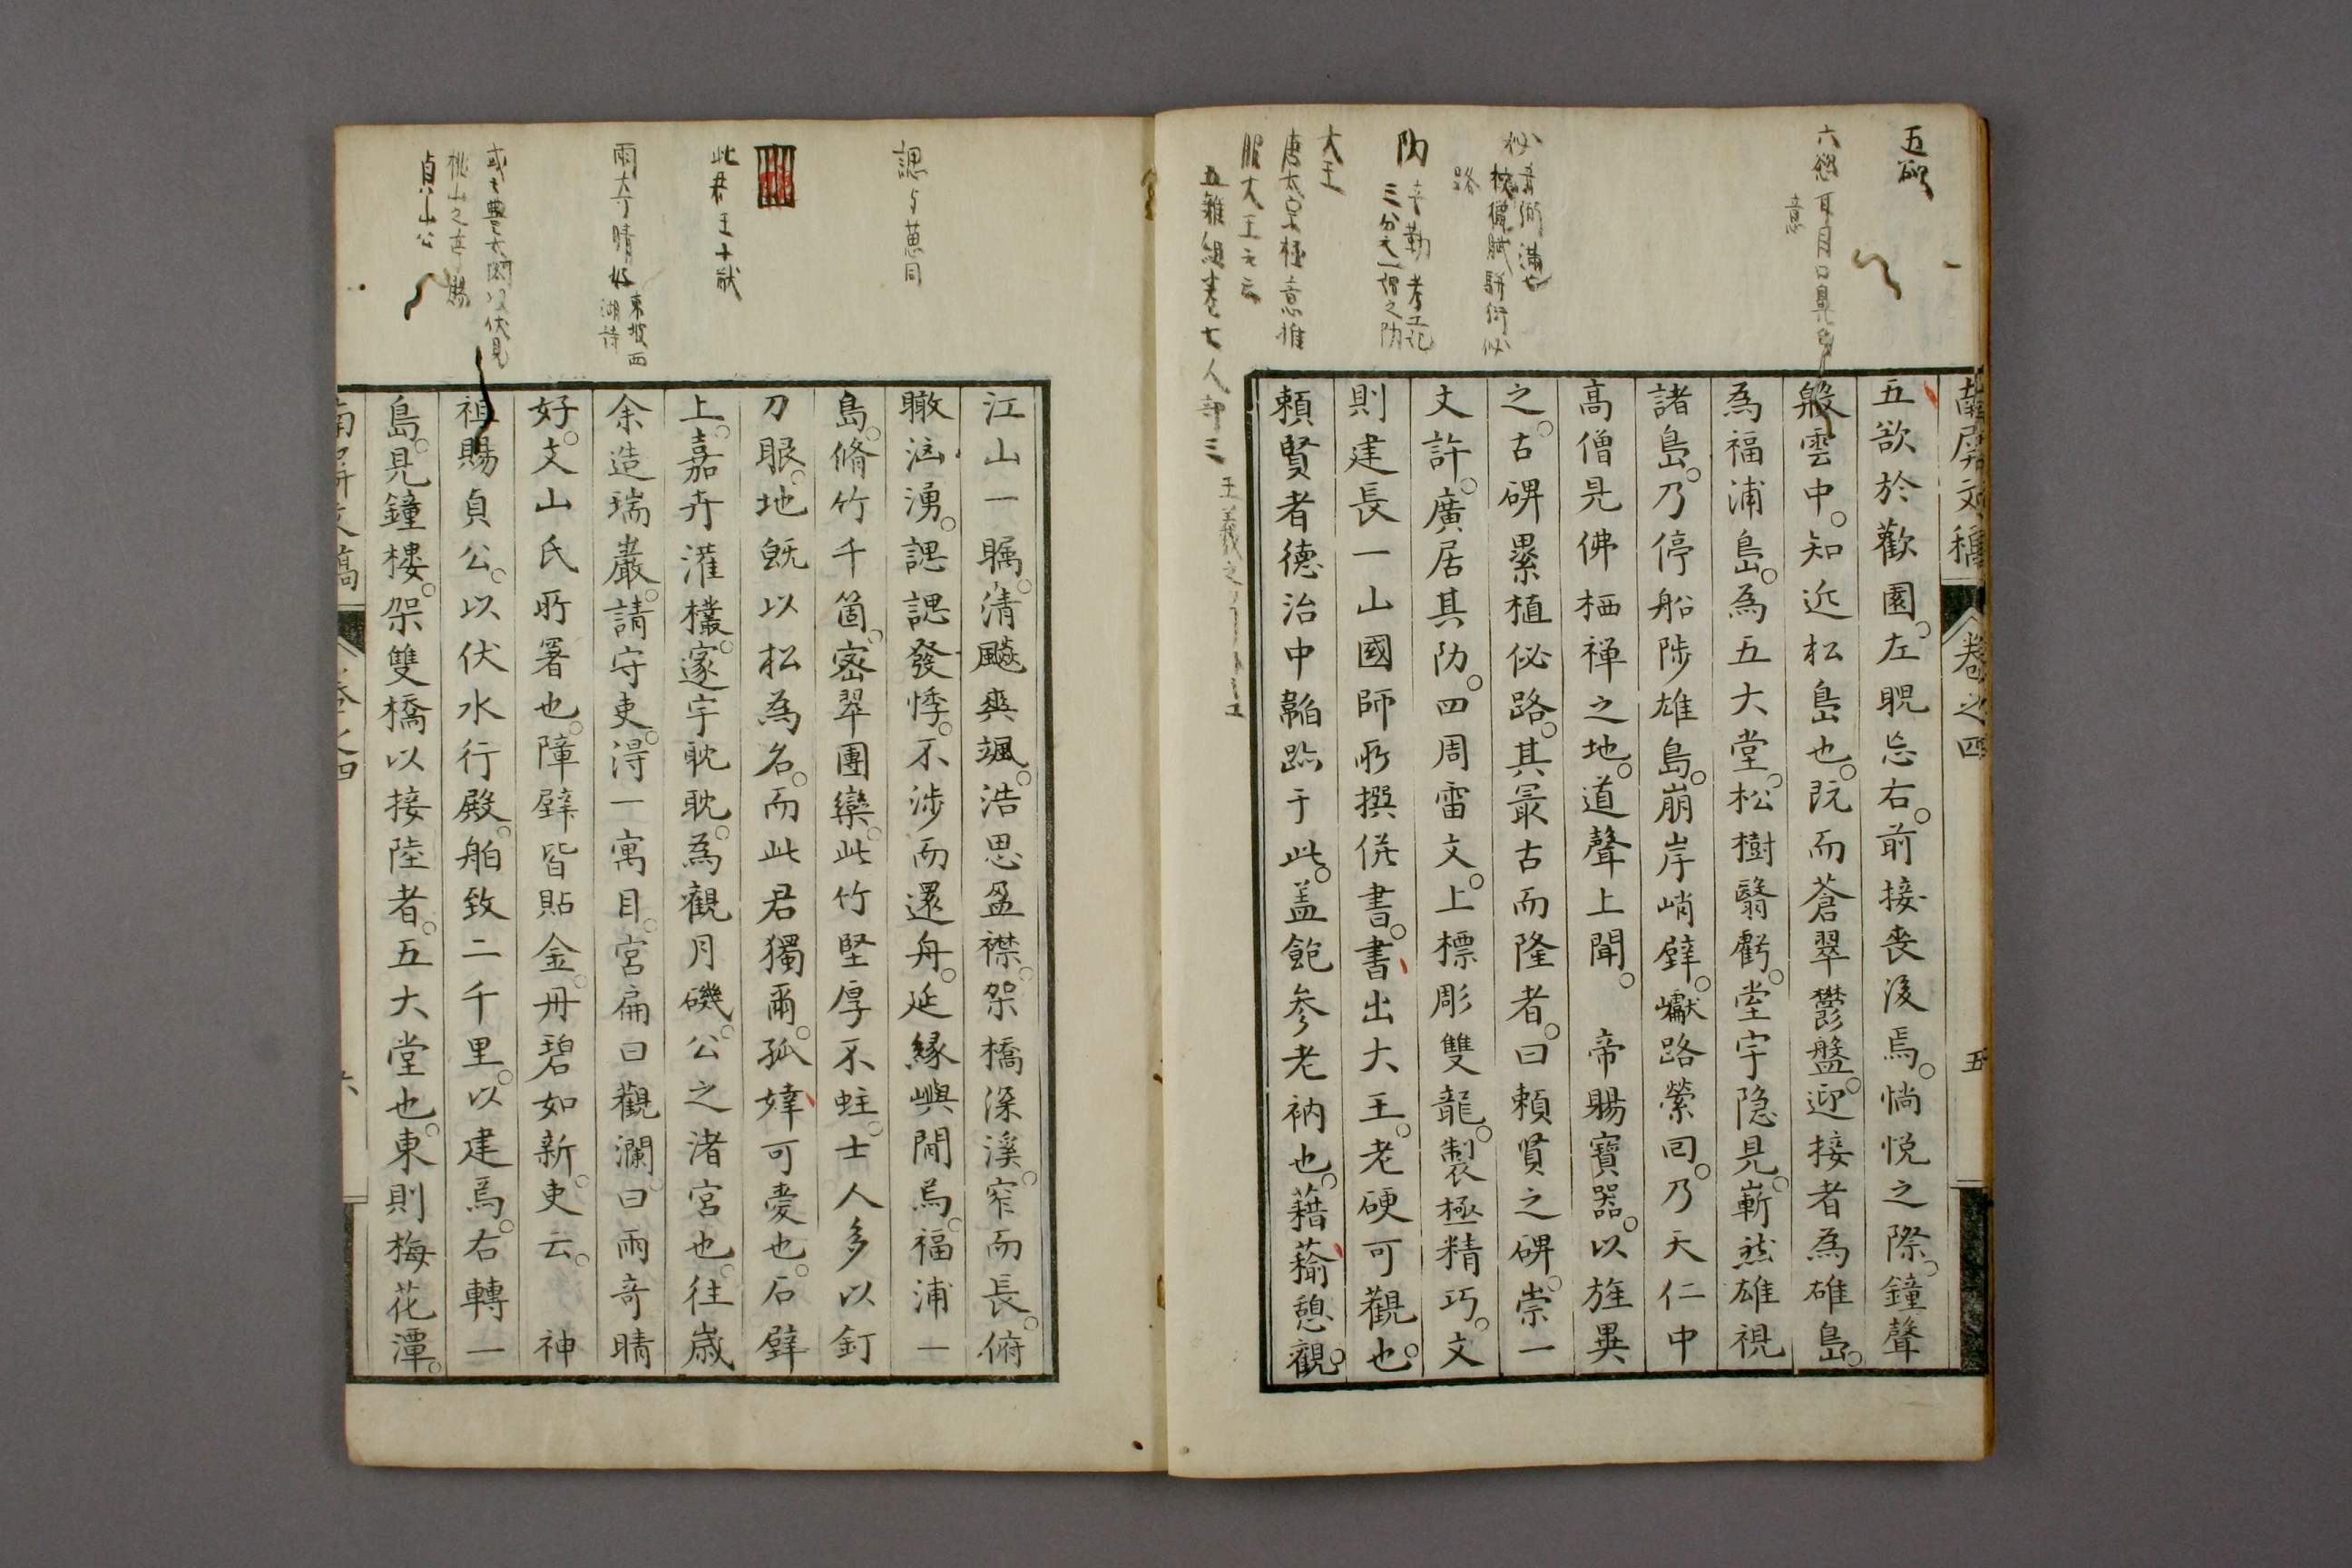 南屏文稿 卷之四 五
五欲於歡園。左睨忘右。前接喪後焉。惝悦之際。鐘聲
般雲中。知近松島也。既而蒼翠鬱盤。迎接者為雄島。
為福浦島。為五大堂。松樹翳虧。堂宇隐見。嶄然雄視
諸島。乃停船陟雄島。崩岸峭壁。巘路縈回。乃天仁中
高僧見佛栖禅之地。道聲上聞。 帝賜寶器。以旌異
之。古碑累植佖路。其冣古而隆者。曰頼賢之碑。崇一
丈許。廣居其阞。四周雷文。上標彫雙龍。製極精巧。文
則建長一山國師所撰併書。書出大王。老硬可觀也。
頼賢者德治中韜跡于此。盖飽参老衲也。藉蕍憩觀。
江山一矚。清飈爽颯。浩思盈襟。架橋深溪。窄而長。俯
瞰沄湧。諰諰發悸。不渉而還舟。延緣嶼間焉。福浦一
島。脩竹千箇。密翠團欒。此竹堅厚不蛀。士人多以釘
刀眼。地既以松為名。而此君獨爾。孤婞可愛也。石壁
上。嘉卉灌欉。邃宇耽耽。為觀月磯。公之渚宮也。往歳
余造瑞巖。請守吏。得一寓目。宮扁曰觀瀾。曰雨竒晴
好。文山氏所署也。障壁皆貼金。丹碧如新。吏云。 神
祖賜貞公。以伏水行殿。舶致二千里。以建焉。右轉一
島。見鐘樓。架雙橋以接陸者。五大堂也。東則梅花潭。
南屏文稿 卷之四 六
五欲
六慾耳目口鼻
意
佖
路
阞
三分之一謂之阞
大王
唐太宗極意推
服大王云云
五雜組巻七人部三 王羲之
諰与葸同
此君王十
雨大奇晴好 東坡西
湖詩
或云豊太閤以伏見
桃山之
貞山公